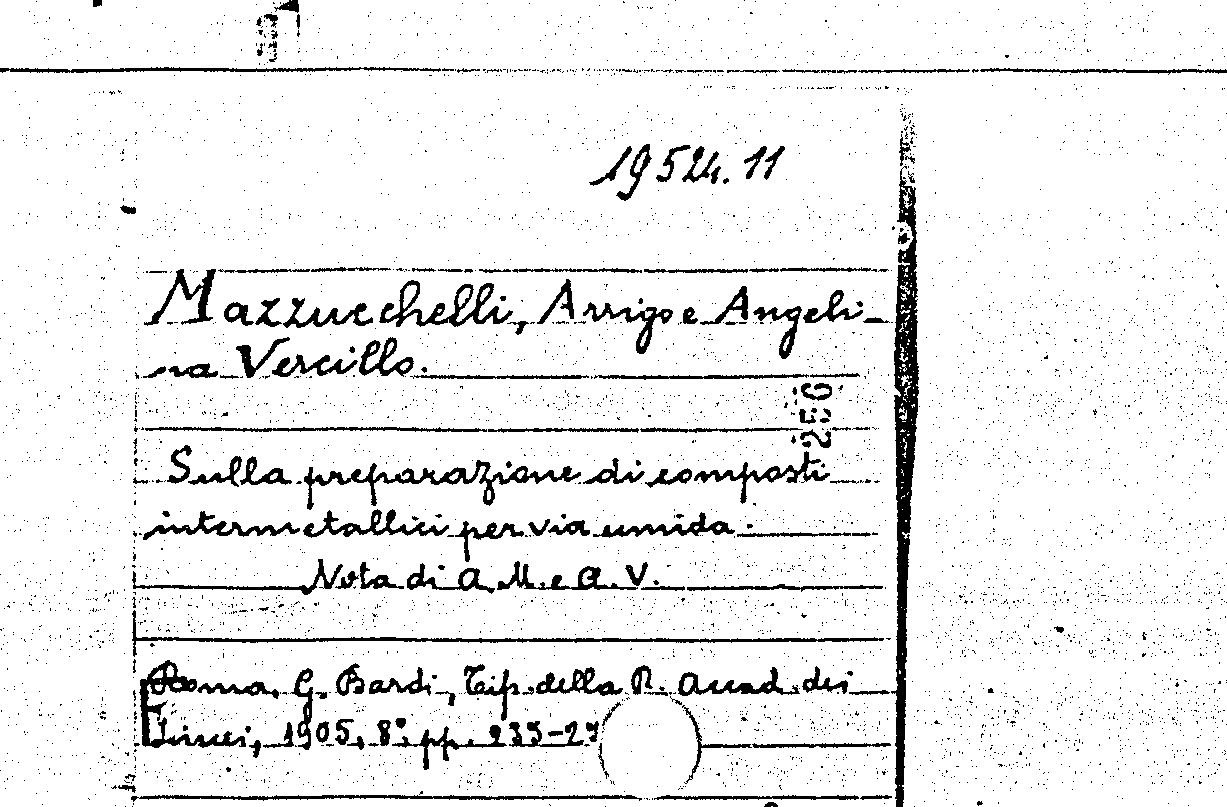 19524.11
Mazzucchelli, Arrigo e Angeli-
na Vercillo.
250
Sulla preparazione di composti
intermetallici per via umida.
Nota di A. M. e A. V.
Roma, G. Bardi, Tip. della R. Accad. dei
Lincei, 1905, 8°, pp. 233-23